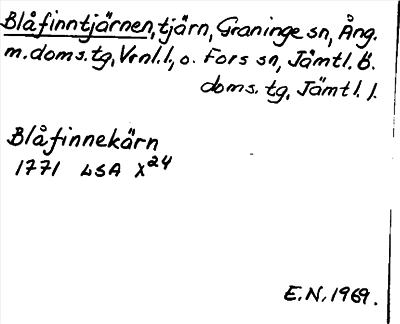 Blåfinntjärnen, tjärn, Graninge sn, Ång.
m. doms. tg, Vrnl. l, o. Fors sn, Jämtl. Ö.
doms. tg, Jämtl. l.
Blåfinnekärn
1771 LSA X24
E.N. 1969.